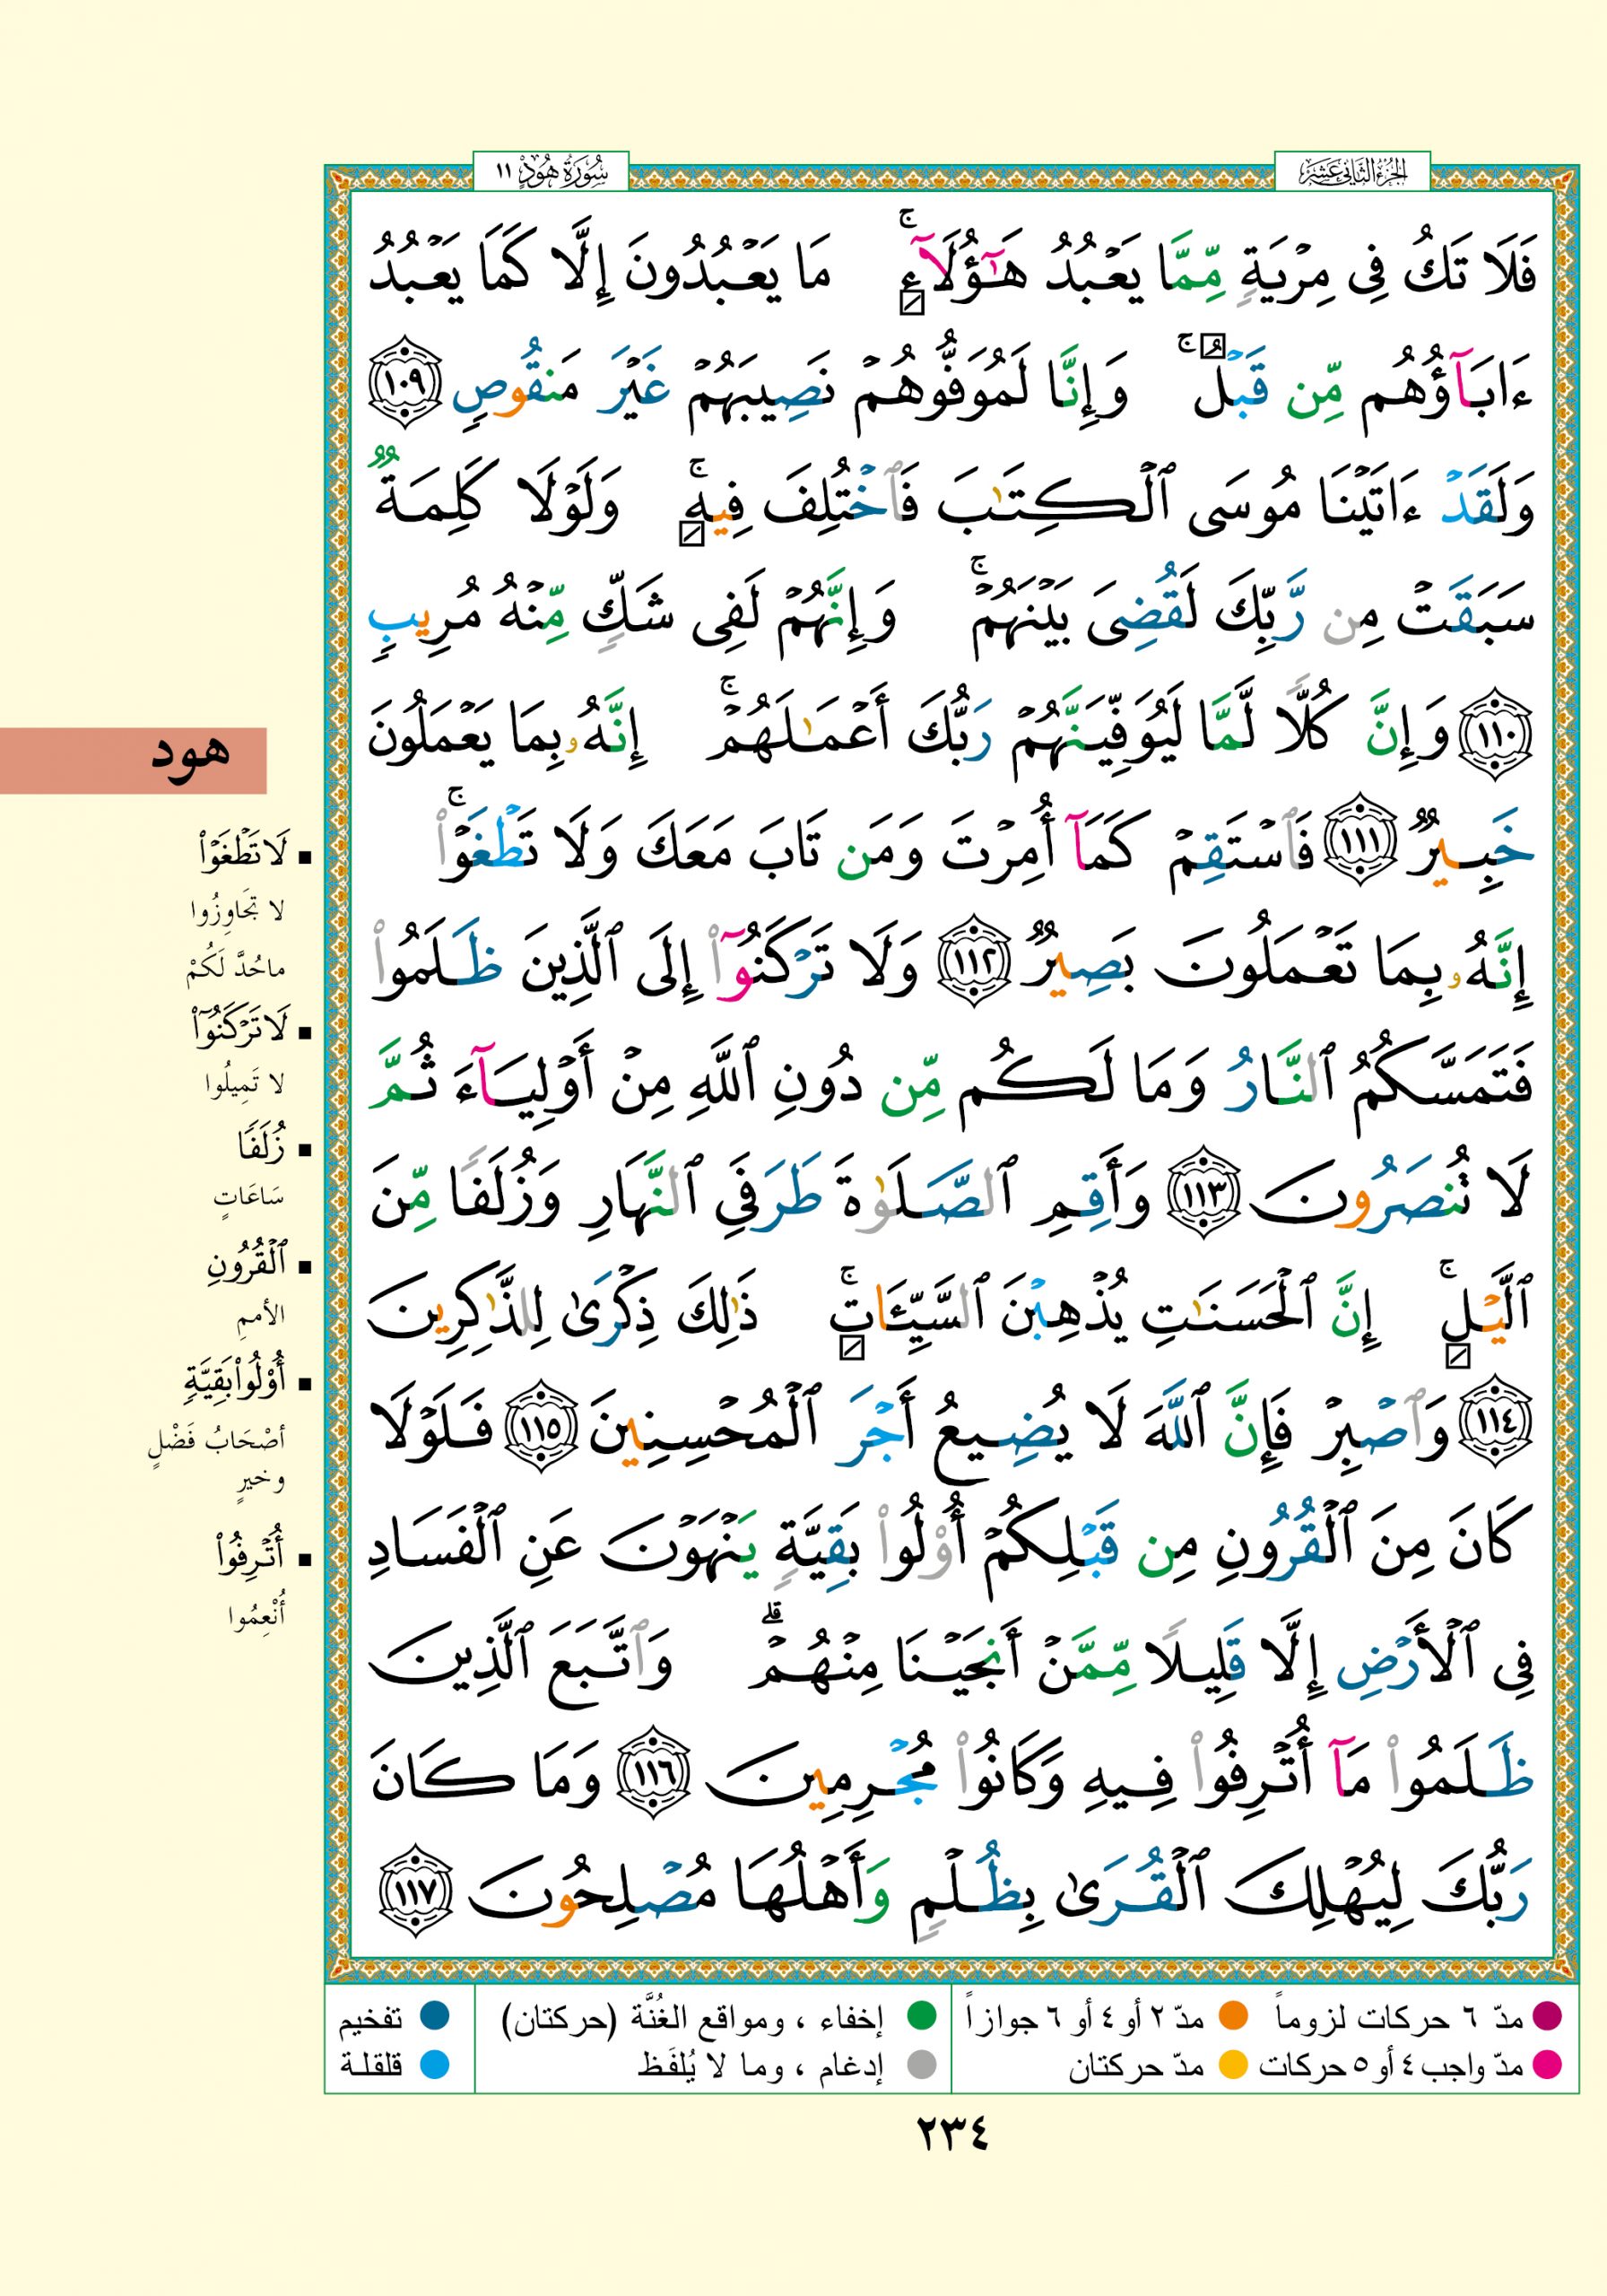 الجزء الثاني عشر
سورة هود ١١
فَلَا تَكُ فِى مِرْيَةٍ مِّمَّا يَعْبُدُ هَٰٓؤُلَآءِ ۚ مَا يَعْبُدُونَ إِلَّا كَمَا يَعْبُدُ
ءَابَآؤُهُم مِّن قَبْلُ ۚ وَإِنَّا لَمُوَفُّوهُمْ نَصِيبَهُمْ غَيْرَ مَنقُوصٍ ١٠٩
وَلَقَدْ ءَاتَيْنَا مُوسَى ٱلْكِتَٰبَ فَٱخْتُلِفَ فِيهِ ۚ وَلَوْلَا كَلِمَةٌ
سَبَقَتْ مِن رَّبِّكَ لَقُضِىَ بَيْنَهُمْ ۚ وَإِنَّهُمْ لَفِى شَكٍّ مِّنْهُ مُرِيبٍ
١١٠ وَإِنَّ كُلًّا لَّمَّا لَيُوَفِّيَنَّهُمْ رَبُّكَ أَعْمَٰلَهُمْ ۚ إِنَّهُۥ بِمَا يَعْمَلُونَ
خَبِيرٌ ١١١ فَٱسْتَقِمْ كَمَآ أُمِرْتَ وَمَن تَابَ مَعَكَ وَلَا تَطْغَوْا۟ ۚ
إِنَّهُۥ بِمَا تَعْمَلُونَ بَصِيرٌ ١١٢ وَلَا تَرْكَنُوٓا۟ إِلَى ٱلَّذِينَ ظَلَمُوا۟
فَتَمَسَّكُمُ ٱلنَّارُ وَمَا لَكُم مِّن دُونِ ٱللَّهِ مِنْ أَوْلِيَآءَ ثُمَّ
لَا تُنصَرُونَ ١١٣ وَأَقِمِ ٱلصَّلَوٰةَ طَرَفَىِ ٱلنَّهَارِ وَزُلَفًا مِّنَ
ٱلَّيْلِ ۚ إِنَّ ٱلْحَسَنَٰتِ يُذْهِبْنَ ٱلسَّيِّـَٔاتِ ۚ ذَٰلِكَ ذِكْرَىٰ لِلذَّٰكِرِينَ
١١٤ وَٱصْبِرْ فَإِنَّ ٱللَّهَ لَا يُضِيعُ أَجْرَ ٱلْمُحْسِنِينَ ١١٥ فَلَوْلَا
كَانَ مِنَ ٱلْقُرُونِ مِن قَبْلِكُمْ أُو۟لُوا۟ بَقِيَّةٍ يَنْهَوْنَ عَنِ ٱلْفَسَادِ
فِى ٱلْأَرْضِ إِلَّا قَلِيلًا مِّمَّنْ أَنجَيْنَا مِنْهُمْ ۗ وَٱتَّبَعَ ٱلَّذِينَ
ظَلَمُوا۟ مَآ أُتْرِفُوا۟ فِيهِ وَكَانُوا۟ مُجْرِمِينَ ١١٦ وَمَا كَانَ
رَبُّكَ لِيُهْلِكَ ٱلْقُرَىٰ بِظُلْمٍ وَأَهْلُهَا مُصْلِحُونَ ١١٧
هود
لَا تَطْغَوْا۟
لا تجَاوِزُوا
ماحُدَّ لَكُمْ
لَا تَرْكَنُوٓا۟
لا تَمِيلُوا
زُلَفًا
سَاعَاتٍ
ٱلْقُرُونِ
الأممِ
أُو۟لُوا۟ بَقِيَّةٍ
أصْحَابُ فَضْلٍ
وخيرٍ
أُتْرِفُوا۟
أُنْعِمُوا
مدّ ٦ حركات لزوماً
مدّ ٢ أو ٤ أو ٦ جوازاً
إخفاء ، ومواقع الغُنَّة (حركتان)
تفخيم
مدّ واجب ٤ أو ٥ حركات
مدّ حركتان
إدغام ، وما لا يُلفَظ
قلقلة
٢٣٤